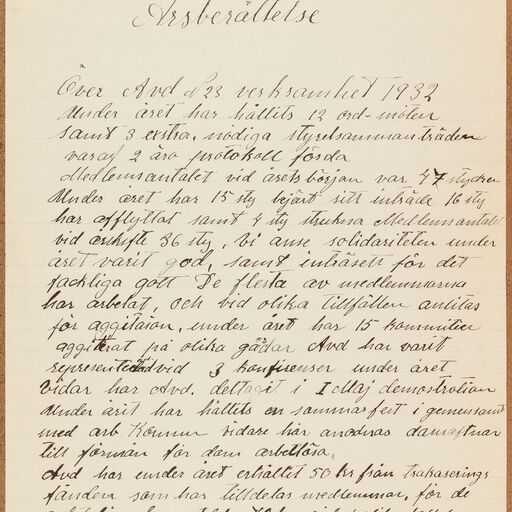 Årsberättelse
Över Avd 523 verksamhet 1932
Under året har hållits 12 ord-möten
samt 3 extra, nödiga styrelsammanträden
varav 2 äro protokoll förda
Medlemsantalet vid årets början var 47 stycken
Under året har 15 sty bejärt sitt inträde 16 sty
har afflyttat samt 4 sty strukna Medlemsantalet
vid årskifte 36 sty, Vi anse solidariteten under
året varit god, samt inträsett för det
fackliga gott De flesta av medlemmarna
har arbetat, och vid olika tillfällen anlitas
för aggitaion, under året har 15 kommitéer
aggiterat på olika gårdar Avd har varit
representerad vid 3 konfrenser under året
Vidar har Avd. deltagit i 1 Maj demostration
Under årit har hållets en sommarfest i gemensamt
med arb Kommun vidare har anodnas dansaftnar
till förman för dom arbetlösa.
Avd har under året erhållet 50 kr från trakaserings
fånden som har tilldelas medlemmar, för de